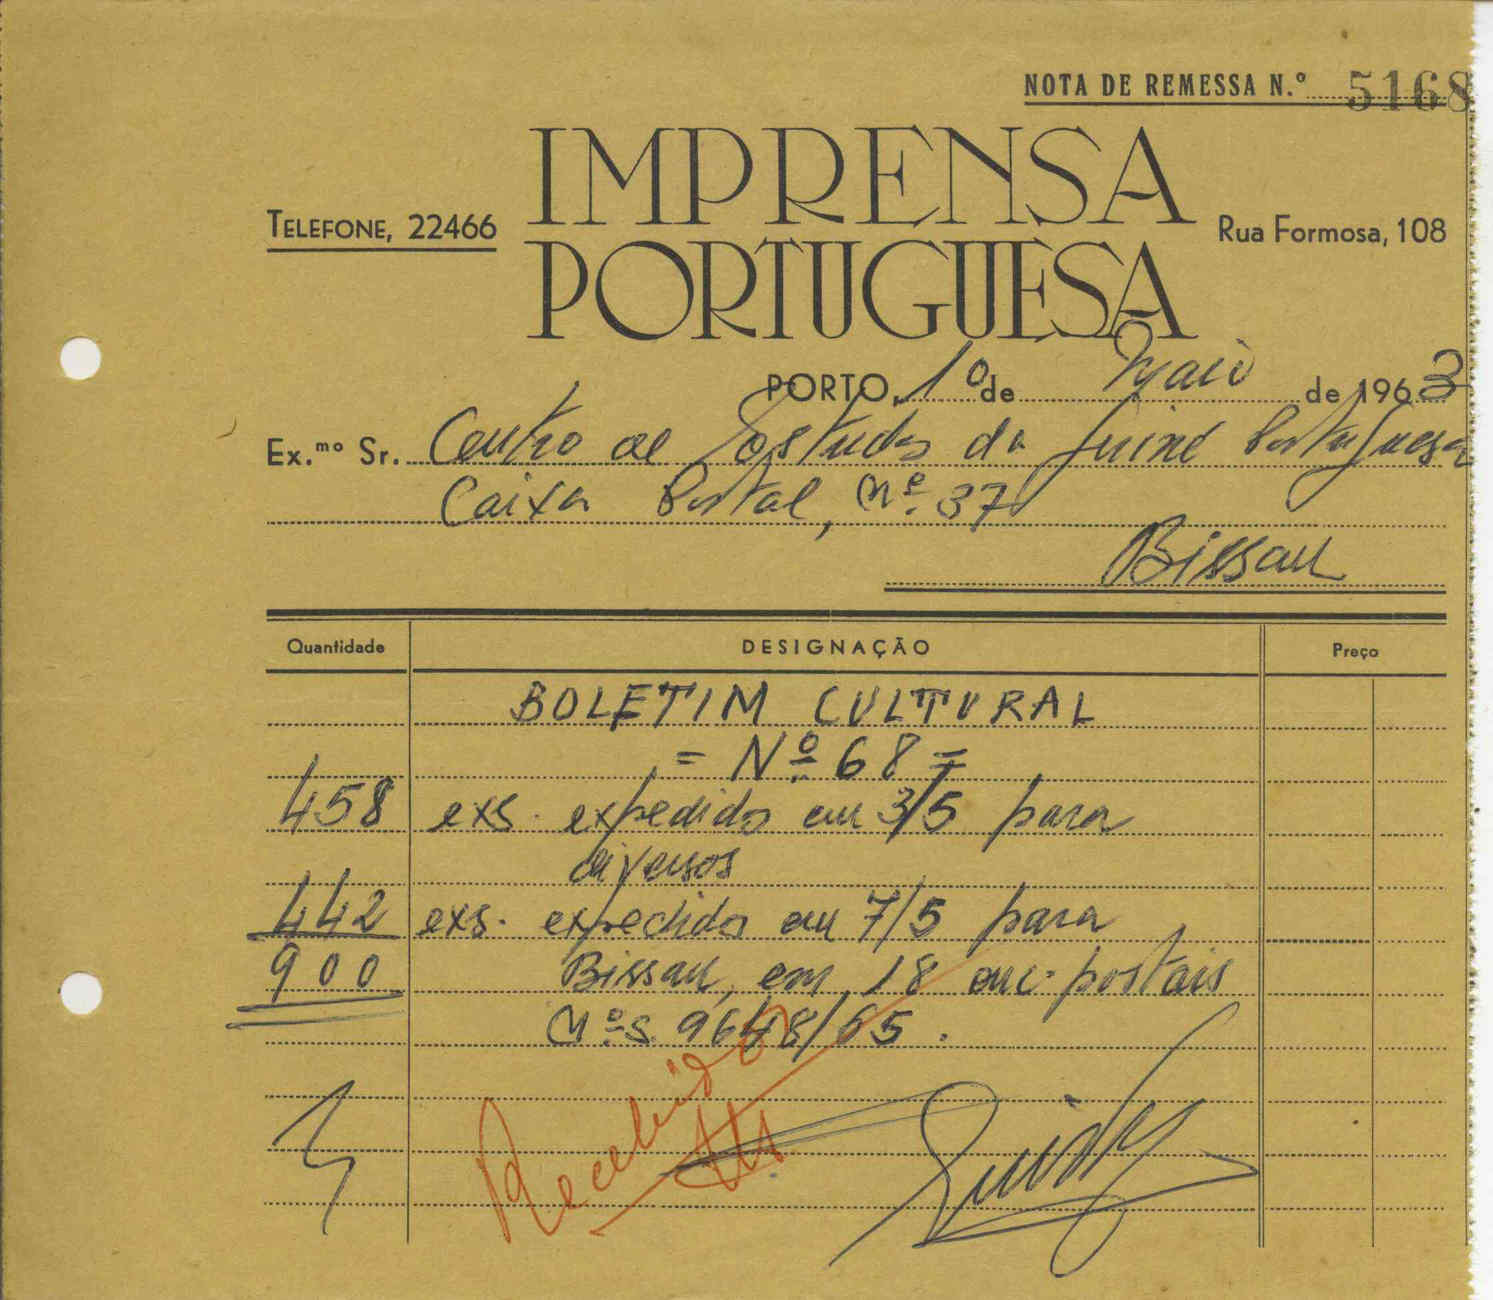 NOTA DE REMESSA N.º 5168
IMPRENSA
PORTUGUESA
TELEFONE, 22466
Rua Formosa, 108
PORTO, 1º de Maio de 1963
Ex.mo Sr. Centro de Estudos da Guiné Portuguesa
Caixa Postal, Nº 37
Bissau
Quantidade DESIGNAÇÃO Preço
BOLETIM CULTURAL
= Nº 68 =
458 exs. expedidos em 3/5 para
diversos
442 exs. expedidos em 7/5 para
900 Bissau, em 18 enc. postais
Nºs. 9648/65.
Recebido